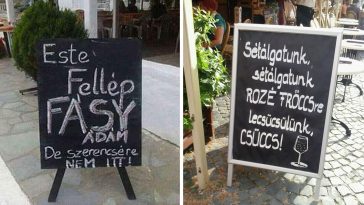 Este
Fellép
FASY
ÁDÁM
De szerencsére
NEM ITT!
Sétálgatunk,
sétálgatunk
ROZÉ FRÖCCSre
lecsücsülünk,
CSÜCCS!